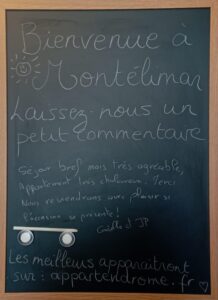 Bienvenue à
Montélimar
Laissez nous un
petit commentaire
Séjour bref mais très agréable,
Appartement très chaleureux. Merci
Nous reviendrons avec plaisir si
l'occasion se présente !
Les meilleurs apparaîtront
sur : appartendrome.fr